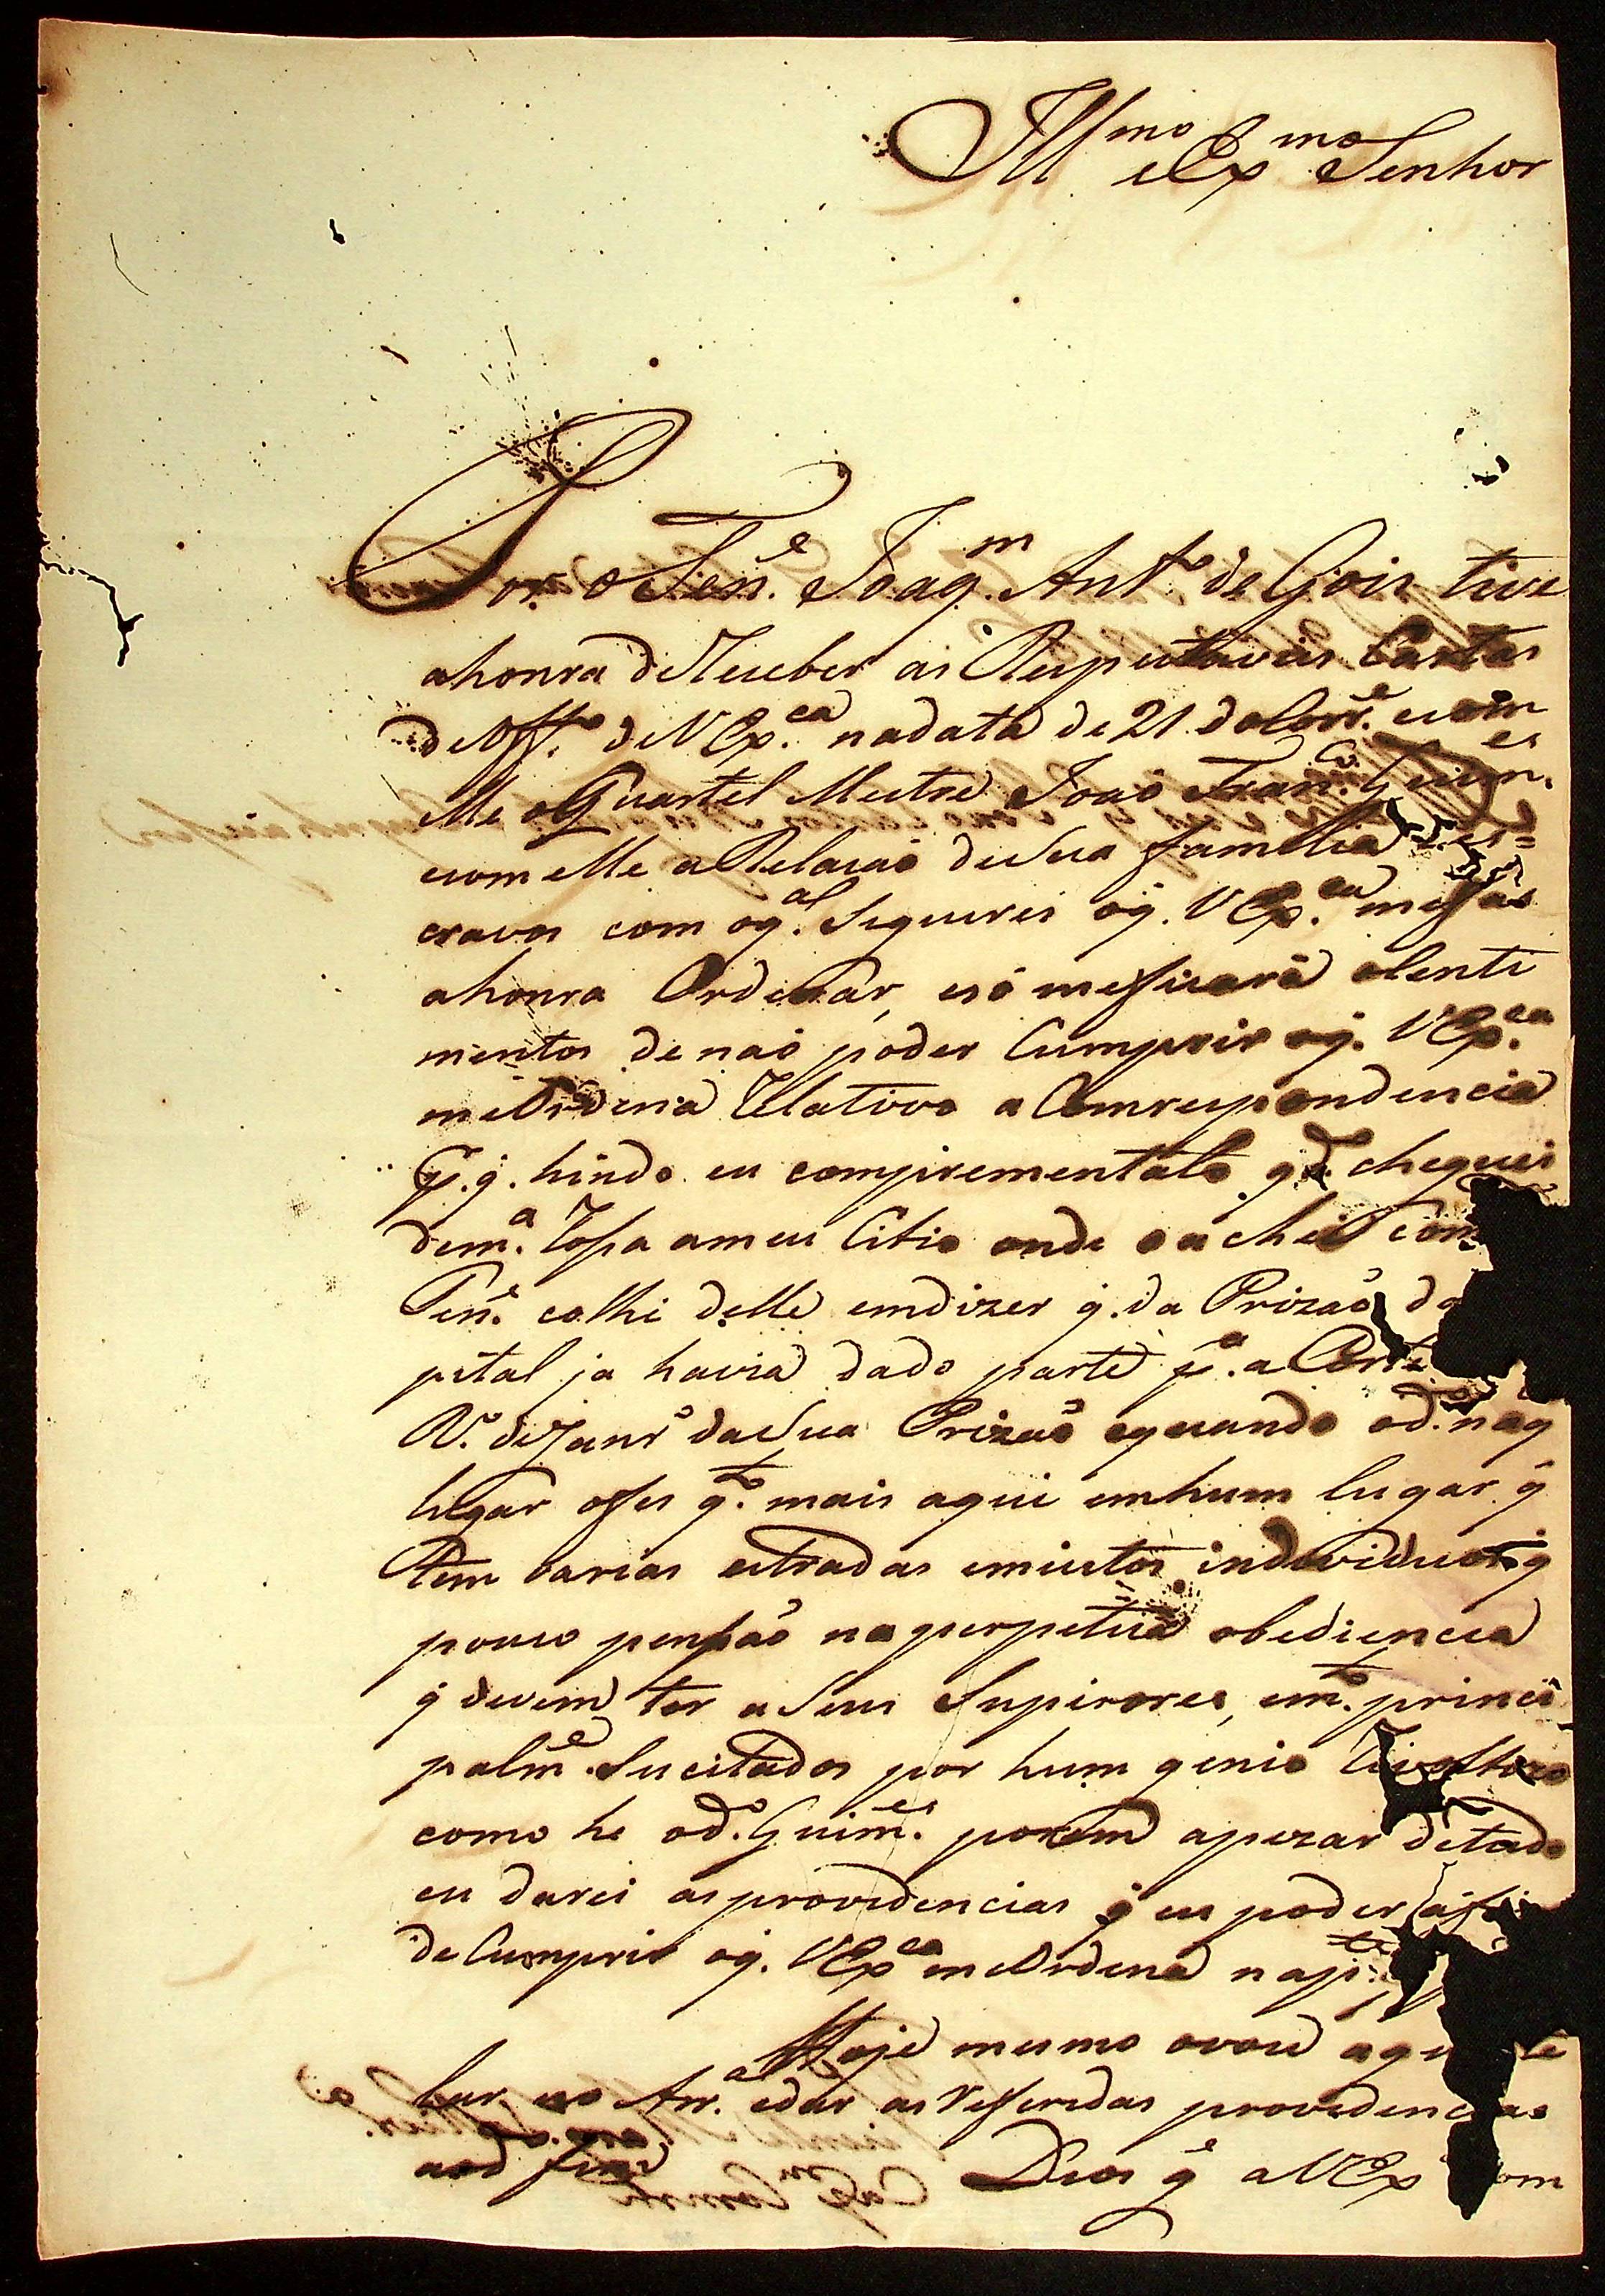 Ill.mo e Ex.mo Senhor
Por o Ten.e Joaq.m Ant.o de Gois tive
ahonra de Receber as Respeitaveis Cartas
de Off.o de V Ex.ca nadata de 21 do Corr.e ecom
elle o Quartel Mestre João Fran.co Guim.es
ecom elle a Relacaõ desua familia e es=
cravos com oq.al Seguirei oq. V Ex.ca mefas
ahonra Ordenar, esó meficará o senti
mentos de naõ poder Cumprir oq. V Ex.ca
meOrdena Relativo a Comrespondencia
p.q. hindo eu comprimentalo q.do cheguei
dem.a Tropa ameu Citio onde o achei com
Ten.e colhi delle emdizer q. da Prizaõ da
pital ja havia dado parte p.a a Corte
R. deJanr.o dasua Prizaõ equando od.o naq
lugar ofes q.to mais aqui emhum lugar q
tem varias estradas emuitos individuos q
pouco pensaõ na perpetua obediencia
q devem ter aseus Supirores, em.to princi
palm.e Sucitados por hum genio
como he od.o Guim.es porem apezar detudo
eu darei as providencias q eu poder afim
de Cumprir oq. V Ex.ca meOrdena
Hoje mesmo ovou
lar ao Arr.al edar as Referidas providencias
aod.o fim Deos g.e a V Ex om